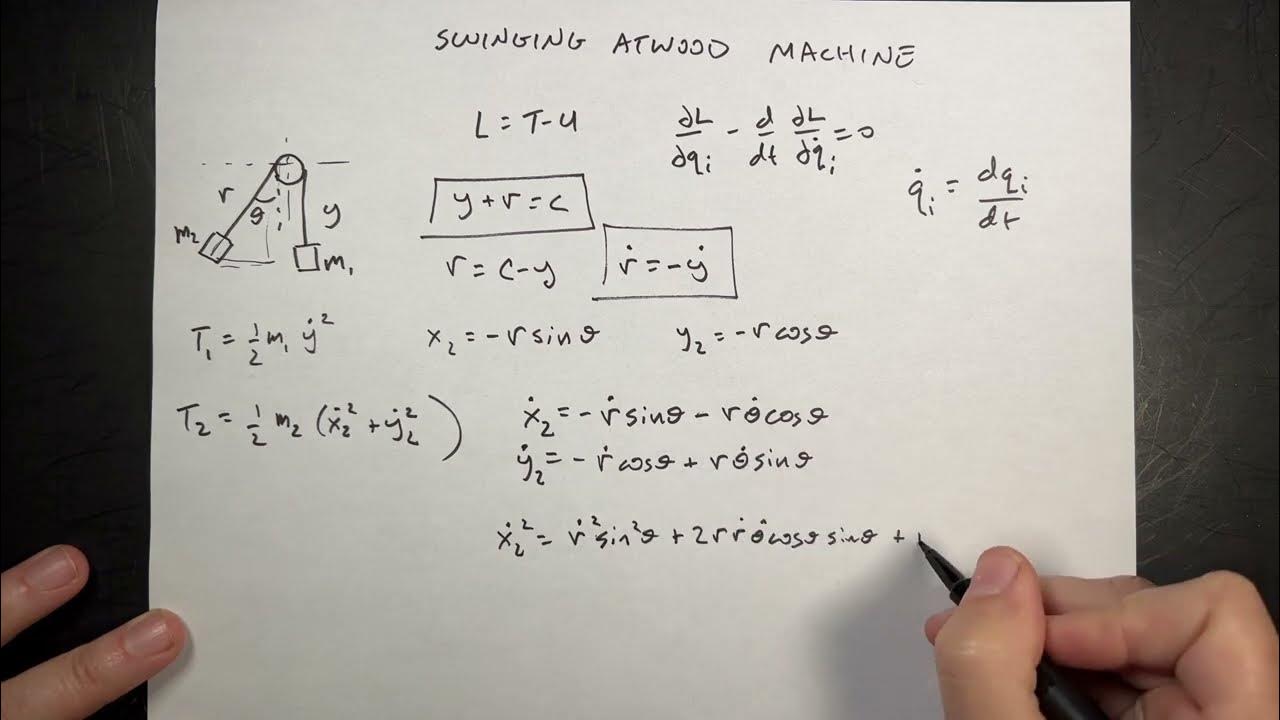 SWINGING ATWOOD MACHINE
L = T - U
∂L/∂qᵢ - d/dt ∂L/∂q̇ᵢ = 0
q̇ᵢ = dqᵢ/dt
r
θ
y
m₂
m₁
y + r = c
r = c - y
ṙ = -ẏ
T₁ = 1/2 m₁ ẏ²
x₂ = -r sinθ
y₂ = -r cosθ
T₂ = 1/2 m₂ (ẋ₂² + ẏ₂²)
ẋ₂ = -ṙ sinθ - r θ̇ cosθ
ẏ₂ = -ṙ cosθ + r θ̇ sinθ
ẋ₂² = ṙ² sin²θ + 2 r ṙ θ̇ cosθ sinθ +